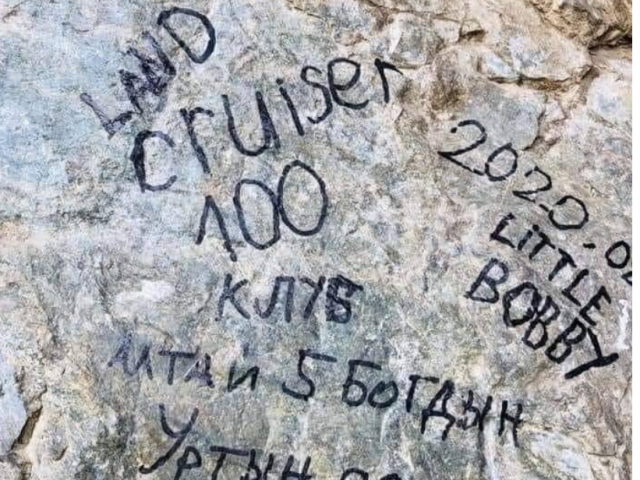 LAND
cruiser
100
КЛУБ
АЛТАИ 5 БОГДЫН
УРТЫН
2020.02
LITTLE
BOBBY